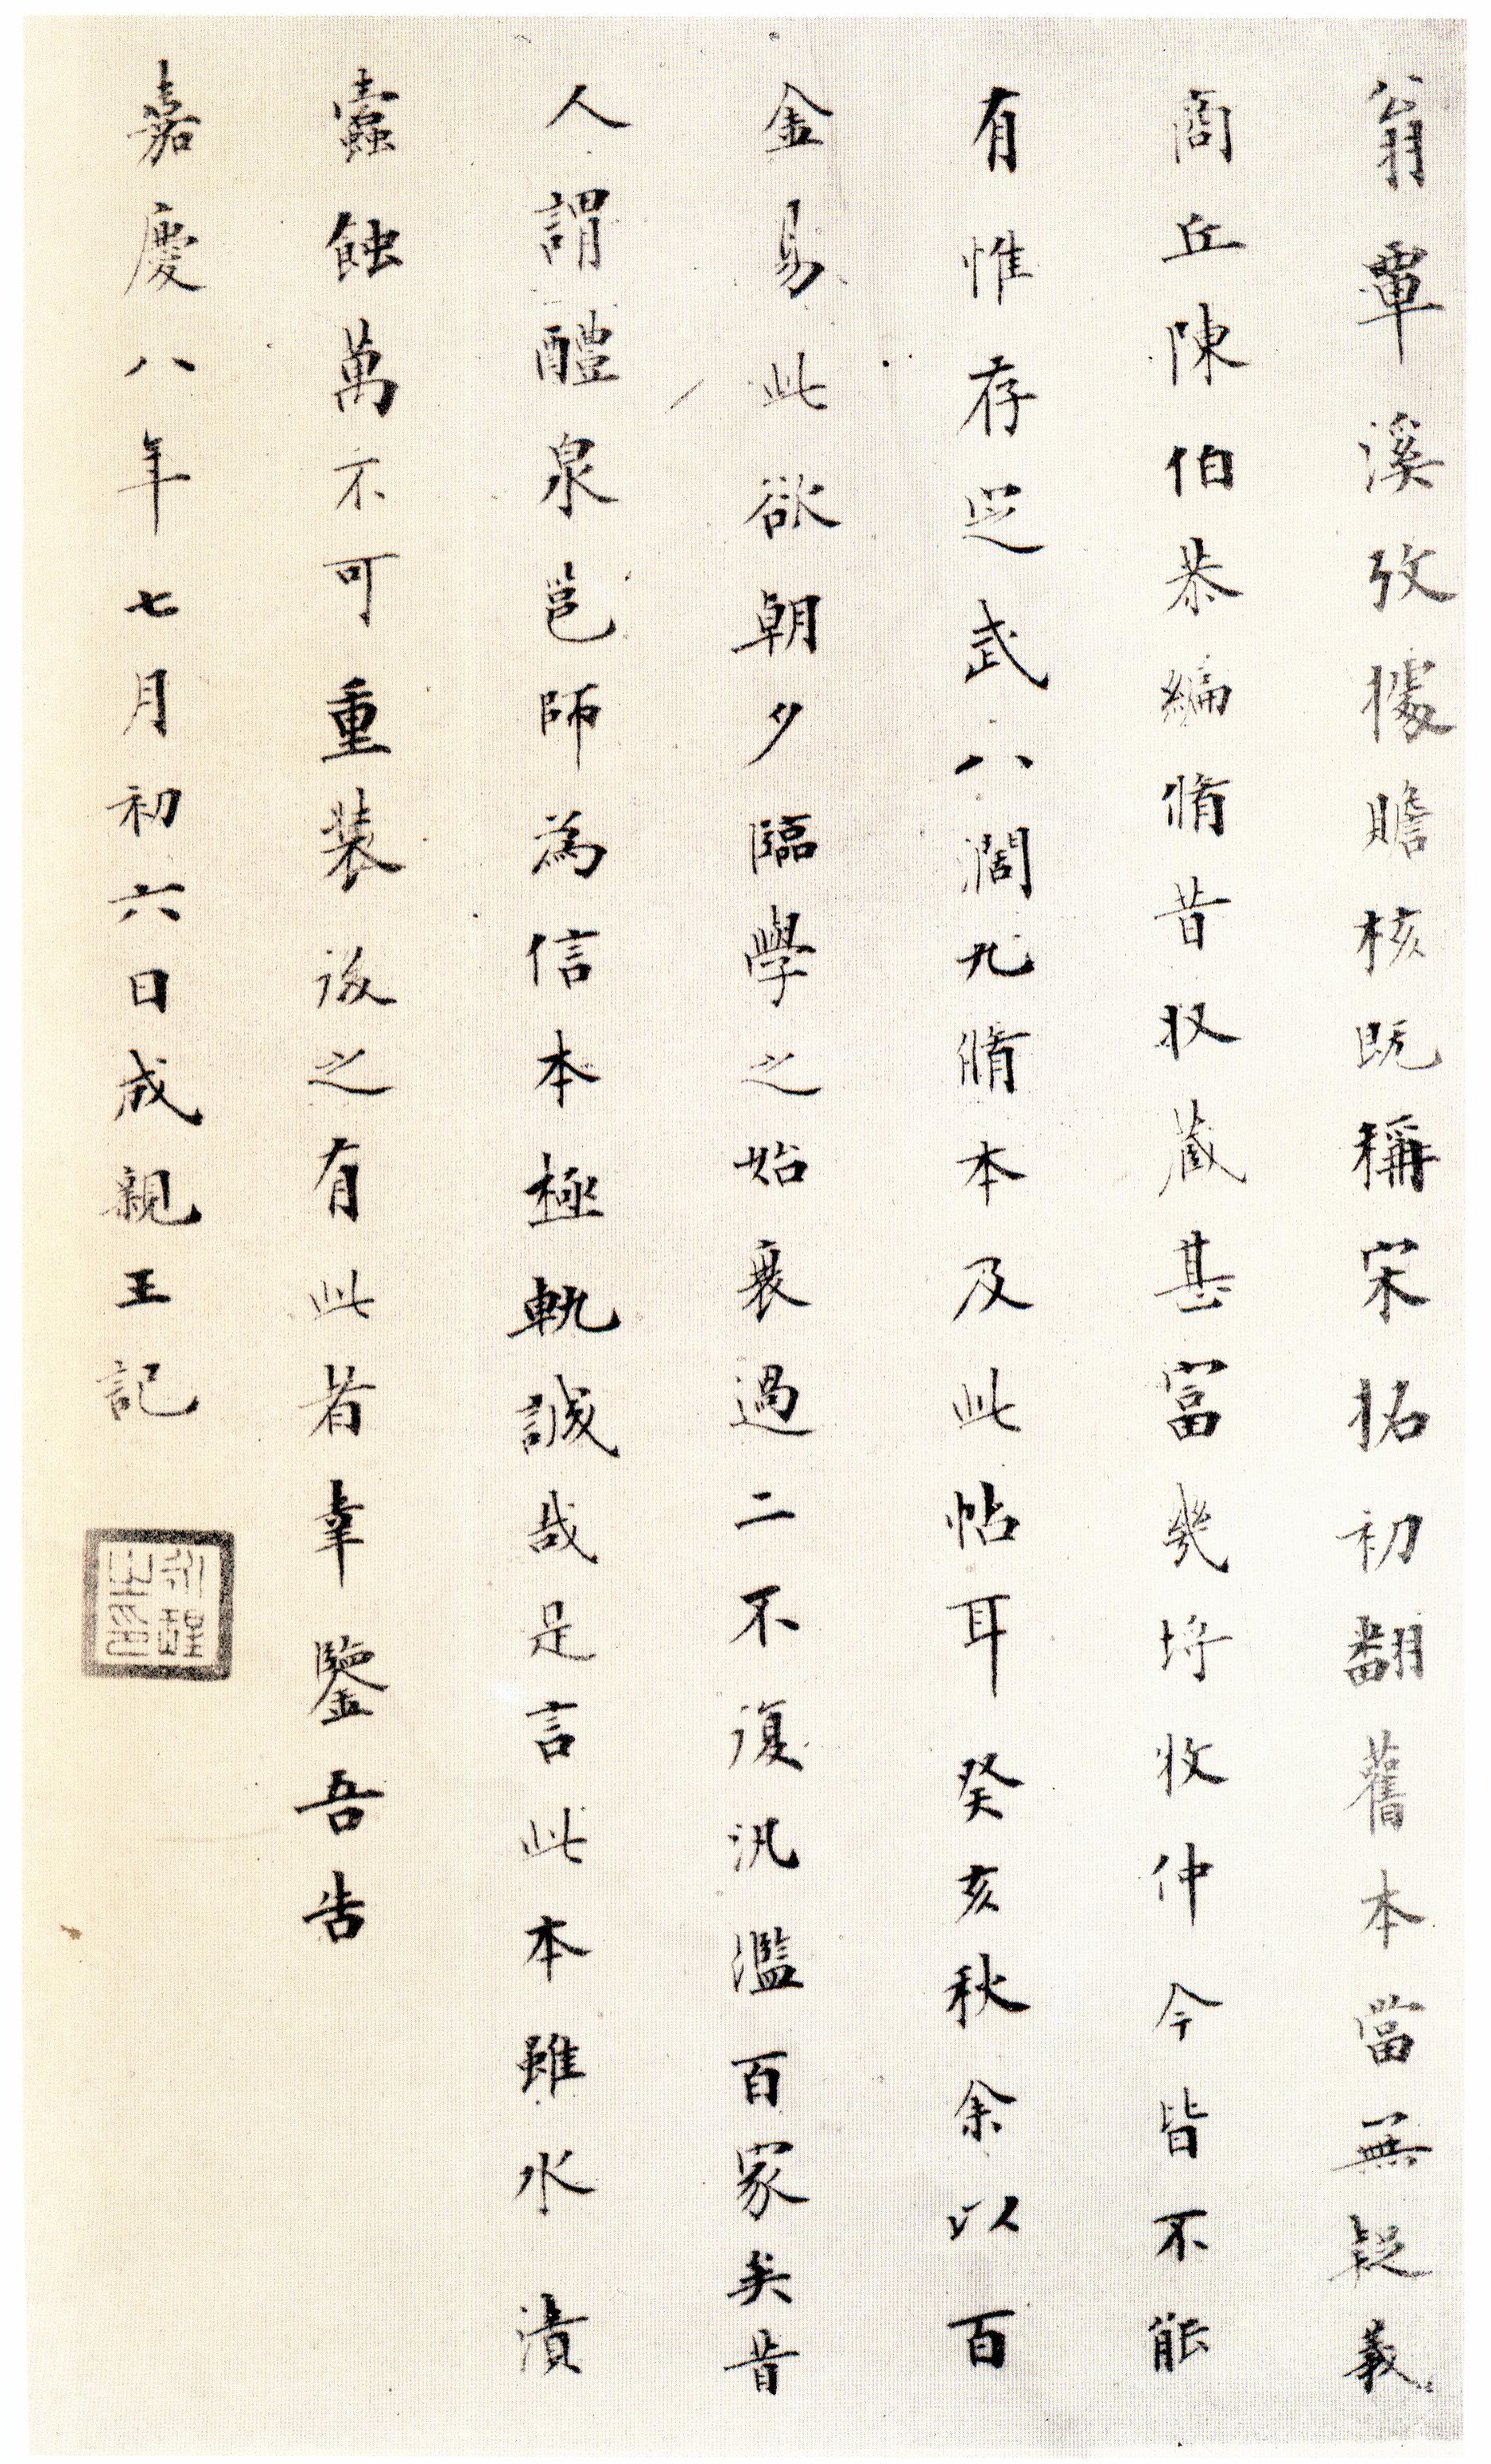 翁覃溪攷據贍核既稱宋拓初翻舊本當無疑義
商丘陳伯恭編脩昔收藏甚富幾埒收仲今皆不能
有惟存定武八闊九脩本及此帖耳癸亥秋余以百
金易此欲朝夕臨學之始衰過二不復汎濫百家矣昔
人謂醴泉邕師為信本極軌誠哉是言此本雖水漬
蠹蝕萬不可重裝後之有此者幸鑒吾告
嘉慶八年七月初六日成親王記
永瑆之印